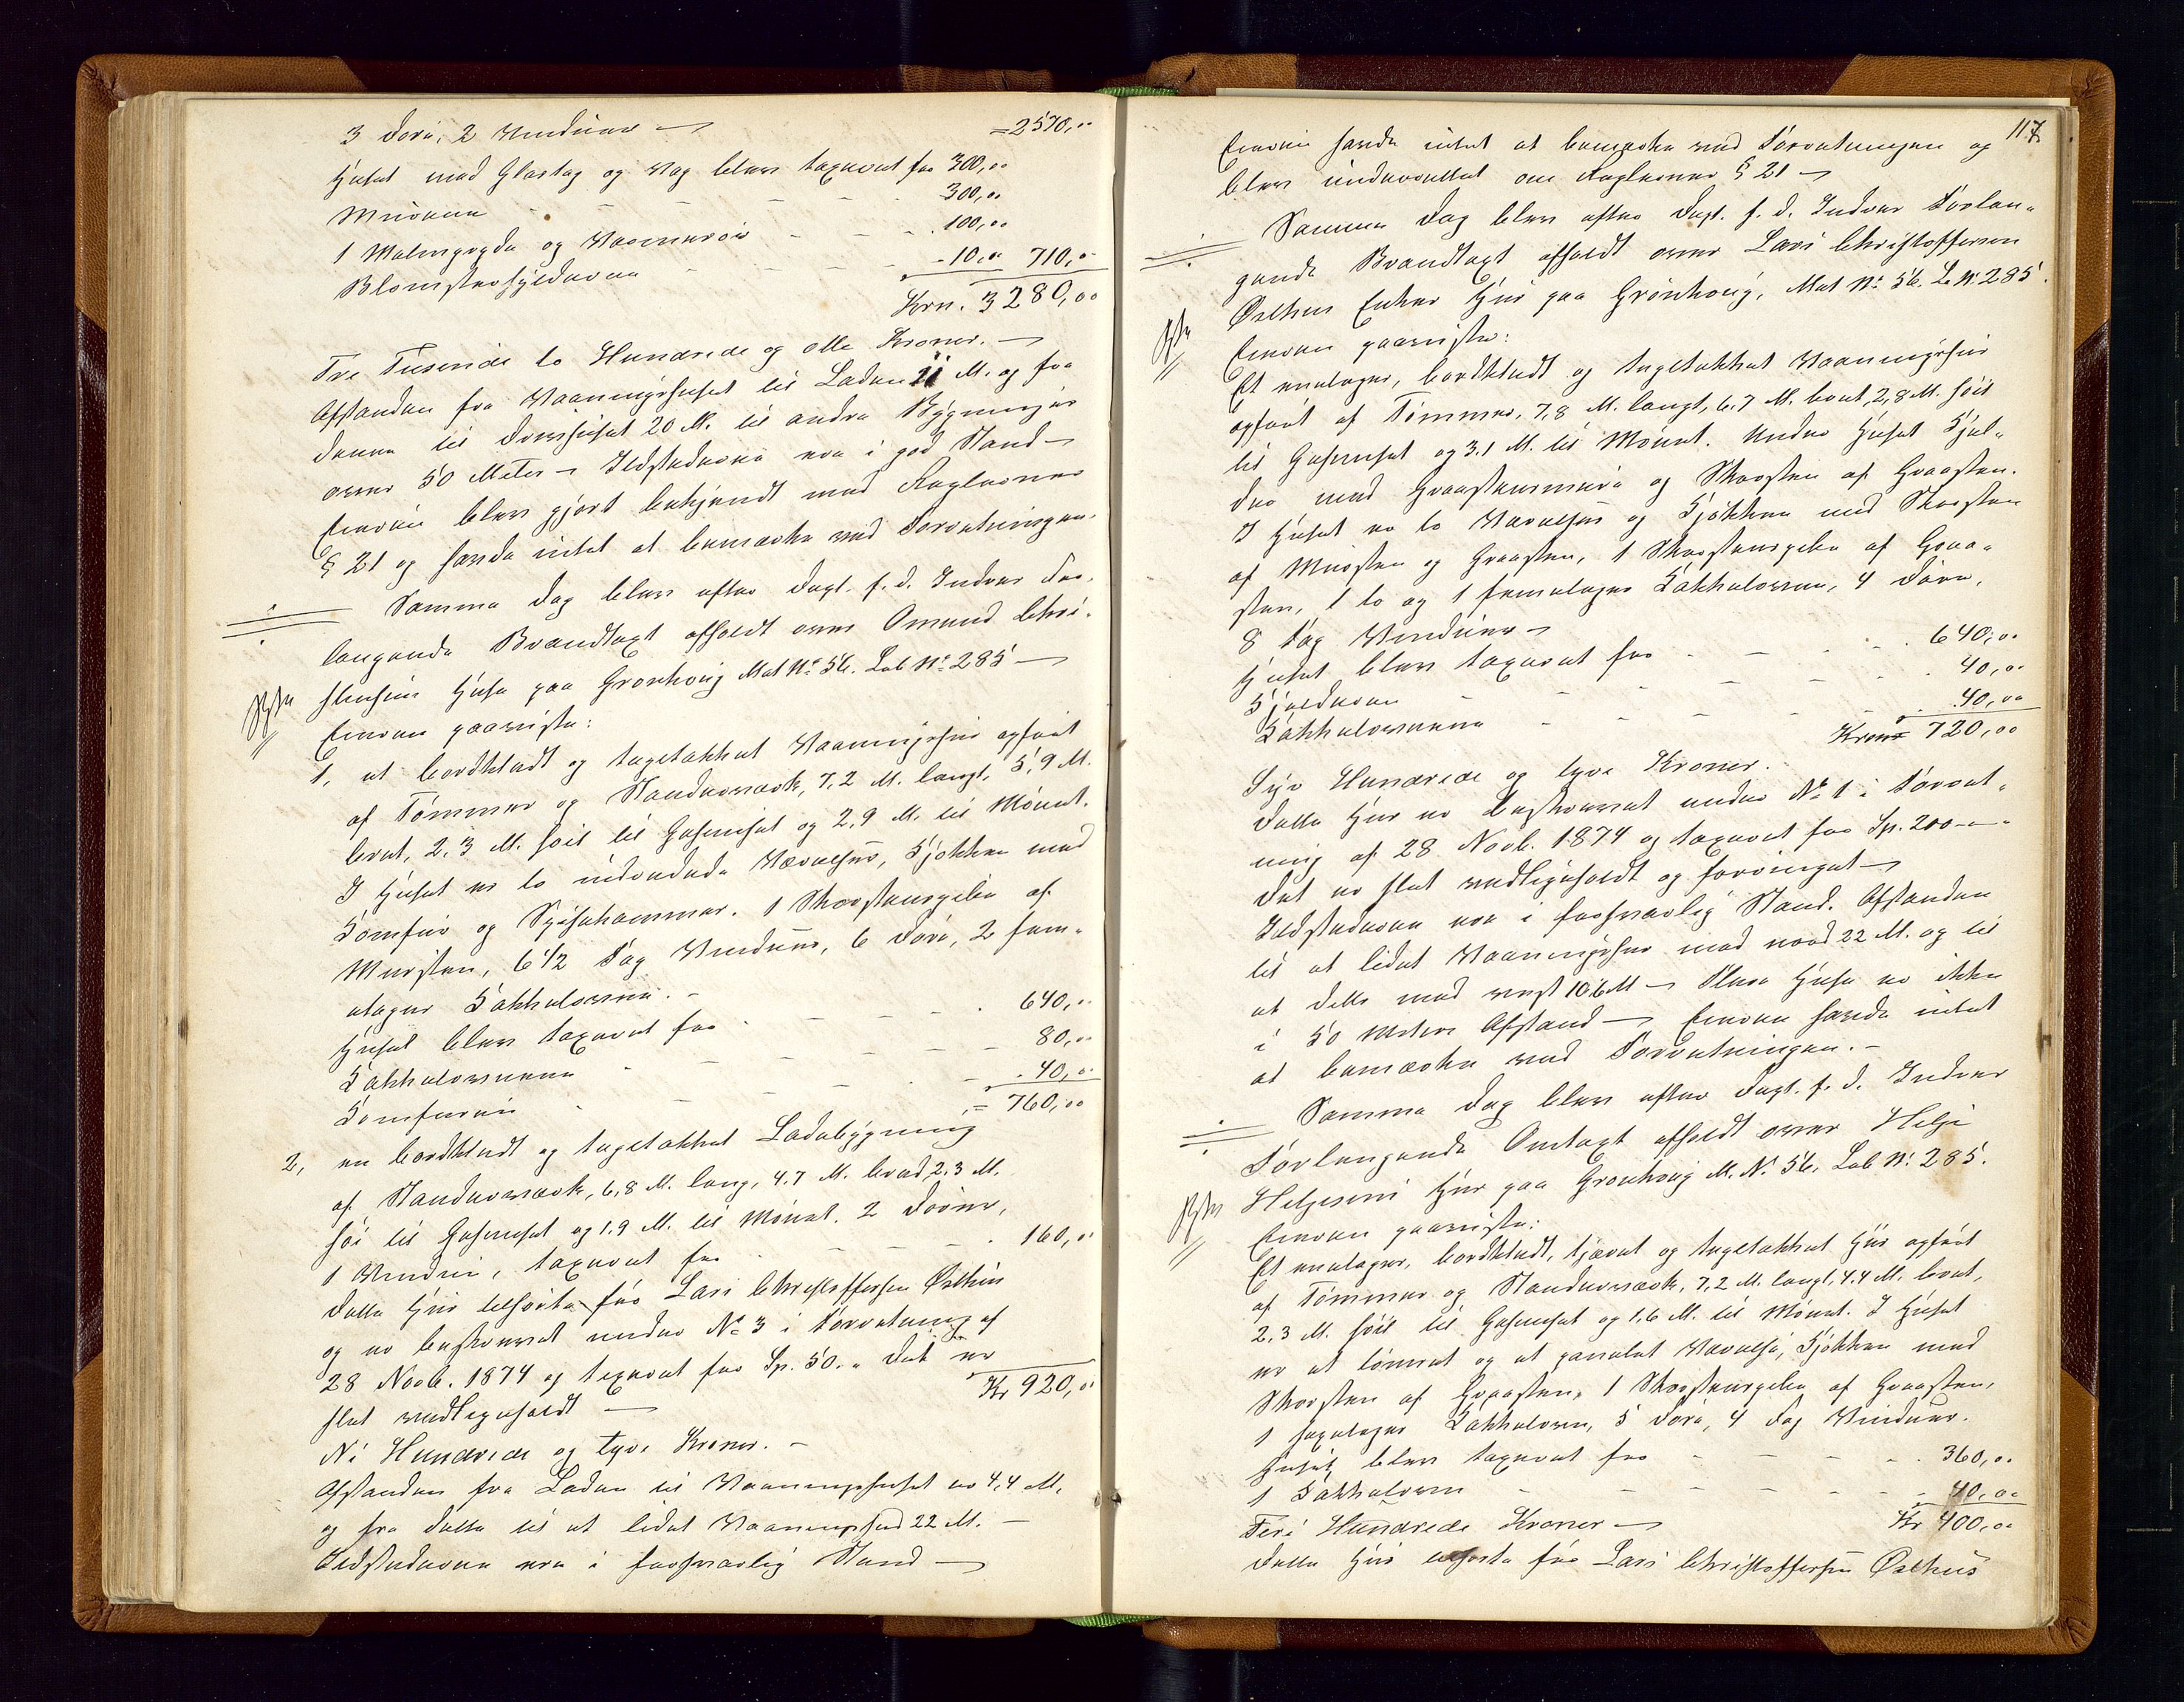 3 Døre, 2 Vinduer — = 2570,00
Huset med Glastag og Væg blev taxeret for 300,00
Murene - - - - 300,00
1 Malmgryde og Varmerør - - 100,00
Blomsterhylderne - - - 10,00 710,00
Krn. 3280,00
Tre Tusende to Hundrede og otte Kroner. —
Afstanden fra Vaaningshuset til Laden 21 M. og fra
denne til Drivhuset 20 M. til andre Bygninger
over 50 Meter — Ildstederne ere i god Stand —
Eieren blev gjort bekjendt med Reglernes
§ 21 og havde intet at bemærke ved Forretningen.
Samme Dag blev efter Dagt. f. d. Indvær For-
langende Brandtaxt afholdt over Omund Chri-
stensens Huse paa Grønhoug Mat Nº 56. Løb Nº 285 —
Eieren paaviste:
1, et bordklædt og teglstækket Vaaningshus opført
af Tømmer og Standerværk, 7,2 M. langt, 5,9 M.
bredt, 2,3 M. høit til Gesimset og 2,9 M. til Mønet.
I Huset er to indredede Værelser, Kjøkken med
Komfur og Spisekammer. 1 Skorstenspibe af
Mursten, 6 1/2 Fag Vinduer, 6 Døre, 2 fem-
etages Kakkelovne. -
Huset blev taxeret for - - - 640,00
Kakkelovnene - - - 80,00
Komfuret - - - 40,00
= 760,00
2, en bordklædt og teglstækket Ladebygning
af Standerværk, 6,8 M. lang, 4,7 M. bred, 2,3 M.
høi til Gesimset og 1,9 M. til Mønet. 2 Døre,
1 Vindue, taxeret for - - - 160,00
Dette Hus tilhørte før Lars Christoffersen Østhus
og er beskrevet under Nº 3 i Forretning af
28 Novb. 1874 og taxeret for Sp. 50. „ Det er
slet vedligeholdt — Kr 920,00
Ni Hundrede og tyve Kroner. —
Afstanden fra Laden til Vaaningshuset er 4,4 M.
og fra dette til et lidet Vaaningshus 22 M. —
Ildstederne ere i forsvarlig Stand —
117
Eieren havde intet at bemærke ved Forretningen og
blev underrettet om Reglernes § 21 —
Samme Dag blev efter Dagt. f. d. Indvær Forlan-
gende Brandtaxt afholdt over Lars Christoffersen
Østhus Enkes Hus paa Grønhoug, Mat Nº 56. L. Nº 285.
Eieren paaviste:
Et enetages, bordklædt og teglstækket Vaaningshus
opført af Tømmer, 7,8 M. langt, 6,7 M. bredt, 2,8 M. høit
til Gesimset og 3.1 M. til Mønet. Under Huset Kjel-
der med Graastensmure og Skorsten af Graasten.
I Huset er to Værelser og Kjøkken med Skorsten
af Mursten og Graasten, 1 Skorstenspibe af Graa-
sten, 1 to og 1 femetages Kakkelovn, 4 Døre,
8 Fag Vinduer —
Huset blev taxeret for - - - 640,00
Kjelderen - - - 40,00
Kakkelovnene - - - 40,00
Kroner 720,00
Syv Hundrede og tyve Kroner.
Dette Hus er beskrevet under Nº 1 i Forret-
ning af 28 Novb. 1874 og taxeret for Sp. 200 — —
Det er slet vedligeholdt og forringet —
Ildstederne ere i forsvarlig Stand. Afstanden
til et lidet Vaaningshus mod nord 22 M. og til
et dito mod vest 10.6 M — Flere Huse er ikke
i 50 Meters Afstand — Eieren havde intet
at bemærke ved Forretningen. —
Samme Dag blev efter Dagt. f. d. Indvær
Forlangende Omtaxt afholdt over Helje
Heljesens Hus paa Grønhoug M. Nº 56, Løb Nº 285.
Eieren paaviste:
Et enetages, bordklædt, tjæret og teglstækket Hus opført
af Tømmer og Standerværk, 7,2 M. langt, 4.4 M. bredt,
2,3 M. høit til Gesimset og 1,6 M. til Mønet. I Huset
er et tømret og et panelet Værelse, Kjøkken med
Skorsten af Graasten, 1 Skorstenspibe af Graasten,
1 sexetages Kakkelovn, 5 Døre, 4 Fag Vinduer.
Huset blev taxeret for - - - 360,00
1 Kakkelovn - - - 40,00
Fire Hundrede Kroner — Kr 400,00
Dette Hus tilhørte før Lars Christoffersen Østhus